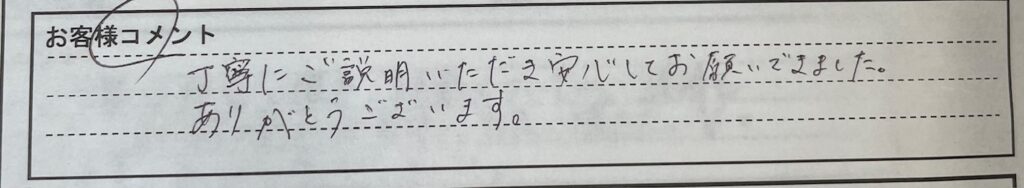 お客様コメント
丁寧にご説明いただき安心してお願いできました。
ありがとうございます。